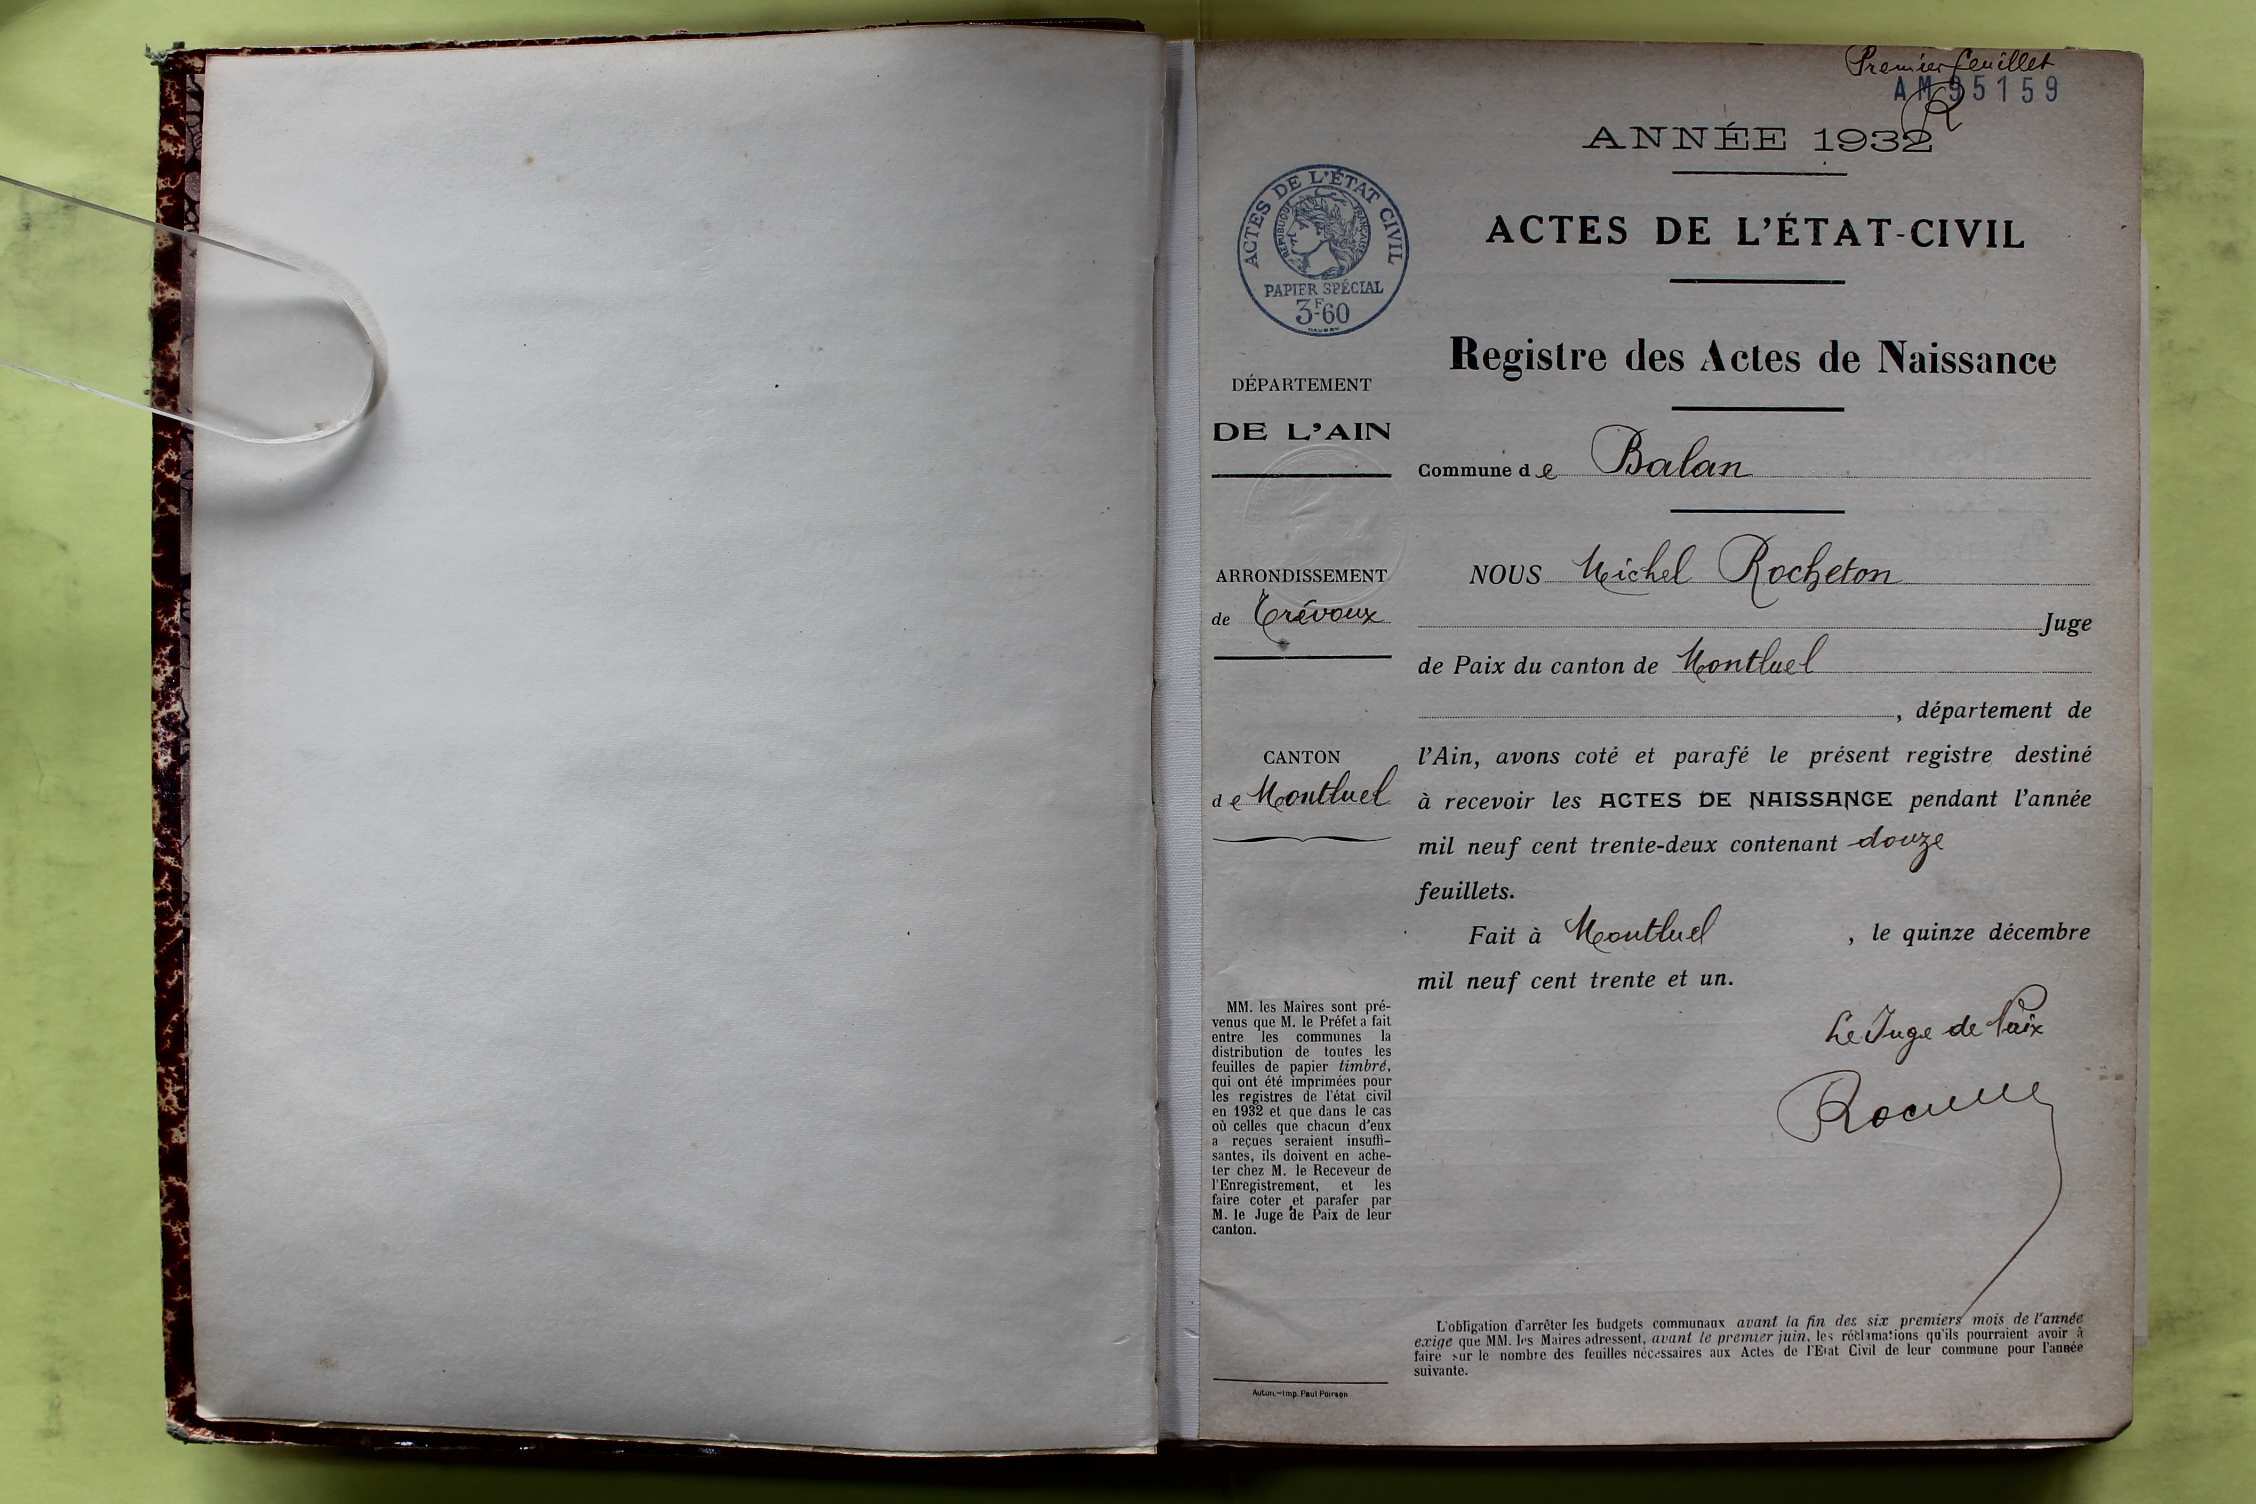 Premier feuillet
AM 95159
R
ANNÉE 1932
ACTES DE L'ÉTAT CIVIL
RÉPUBLIQUE FRANÇAISE
PAPIER SPÉCIAL
3F60
ACTES DE L'ÉTAT-CIVIL
Registre des Actes de Naissance
DÉPARTEMENT
DE L'AIN
ARRONDISSEMENT
de Trévoux
CANTON
de Montluel
MM. les Maires sont pré-
venus que M. le Préfet a fait
entre les communes la
distribution de toutes les
feuilles de papier timbré,
qui ont été imprimées pour
les registres de l'état civil
en 1932 et que dans le cas
où celles que chacun d'eux
a reçues seraient insuffi-
santes, ils doivent en ache-
ter chez M. le Receveur de
l'Enregistrement, et les
faire coter et parafer par
M. le Juge de Paix de leur
canton.
Autun.—Imp. Paul Poirson
Commune de Balan
NOUS Michel Rocheton
Juge
de Paix du canton de Montluel
, département de
l'Ain, avons coté et parafé le présent registre destiné
à recevoir les ACTES DE NAISSANCE pendant l'année
mil neuf cent trente-deux contenant douze
feuillets.
Fait à Montluel , le quinze décembre
mil neuf cent trente et un.
Le Juge de Paix
L'obligation d'arrêter les budgets communaux avant la fin des six premiers mois de l'année
exige que MM. les Maires adressent, avant le premier juin, les réclamations qu'ils pourraient avoir à
faire sur le nombre des feuilles nécessaires aux Actes de l'Etat Civil de leur commune pour l'année
suivante.